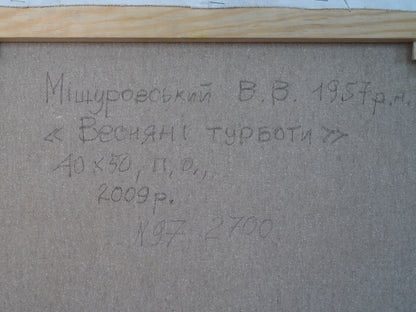 Міщуровський В.В. 1957р.н.
« Весняні турботи »
40х50, п,о.,
2009р.
№97 2700